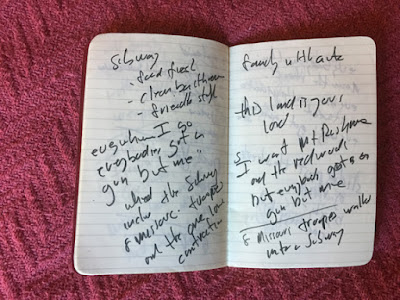 Subway
- food fresh
- clean bathroom
- friendly staff
everywhere I go
everybody's got a
gun but me"
when the Subway
8 Missouri troopers
and the one love
contraction
family with
this land is your
land
I went Mt Rushmore
and the redwoods
but everybody got a
gun but me
8 Missouri troopers walk
into a Subway